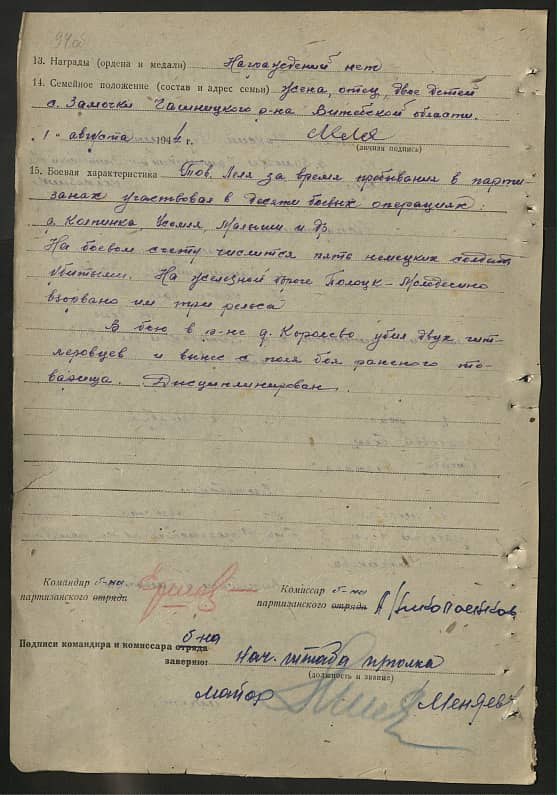 94об
13. Награды (ордена и медали) Награждений нет
14. Семейное положение (состав и адрес семьи) жена, отец, двое детей
с. Замочки Чашницкого р-на Витебской области.
„1“ августа 1944 г. Леля
(личная подпись)
15. Боевая характеристика Тов. Леля за время пребывания в парти-
занах участвовал в десяти боевых операциях:
Колпинка, Усомля, Малыши и др
На боевом счету числится пять немецких солдат
убитыми. На железной дороге Полоцк-Молодечно
взорвано им три рельса
В бою в р-не д. Королево убил двух гит-
леровцев и вынес с поля боя раненого то-
варища. Дисциплинирован.
Командир б-на
партизанского отряда
Комиссар б-на
партизанского отряда
Подписи командира и комиссара отряда б-на
заверяю: Нач. штаба
(должность и звание)
майор